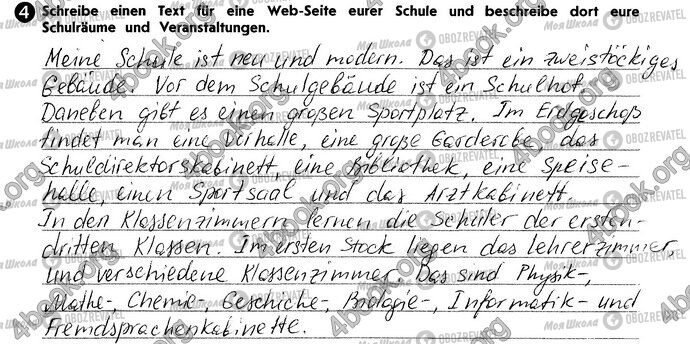 4 Schreibe einen Text für eine Web-Seite eurer Schule und beschreibe dort eure
Schulräume und Veranstaltungen.
Meine Schule ist neu und modern. Das ist ein zweistöckiges
Gebäude. Vor dem Schulgebäude ist ein Schulhof.
Daneben gibt es einen großen Sportplatz. Im Erdgeschoß
findet man eine Vorhalle, eine große Garderobe, das
Schuldirektorskabinett, eine Bibliothek, eine Speise-
halle, einen Sportsaal und das Arztkabinett.
In den Klassenzimmern lernen die Schüler der ersten-
dritten Klassen. Im ersten Stock liegen das Lehrerzimmer
und verschiedene Klassenzimmer. Das sind Physik-,
Mathe-, Chemie-, Geschichte-, Biologie-, Informatik- und
Fremdsprachenkabinette.